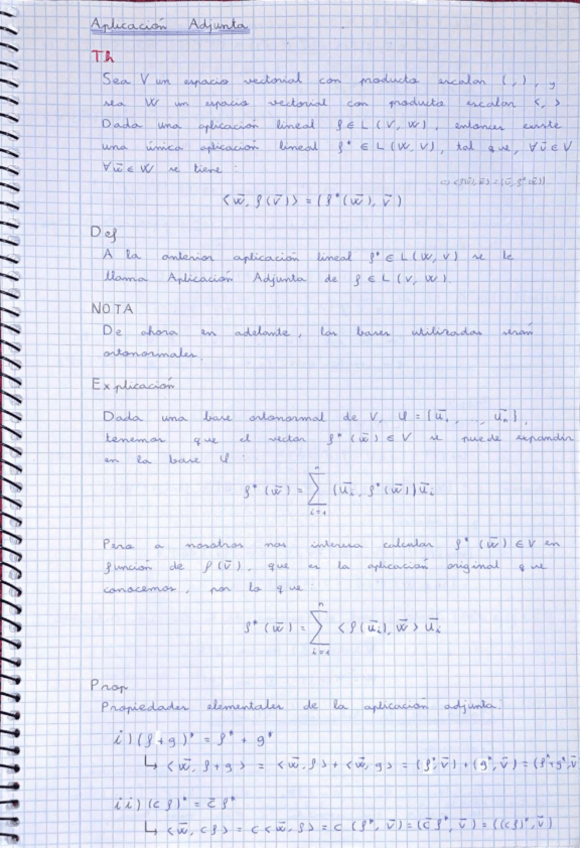 Aplicación Adjunta
Th
Sea V un espacio vectorial con producto escalar (,), y
sea W un espacio vectorial con producto escalar <,>
Dada una aplicación lineal f ∈ L(V, W), entonces existe
una única aplicación lineal f* ∈ L(W, V), tal que, ∀v̄ ∈ V
∀w̄ ∈ W se tiene:
<w̄, f(v̄)> = (f*(w̄), v̄)
Def
A la anterior aplicación lineal f* ∈ L(W, V) se le
llama Aplicación Adjunta de f ∈ L(V, W).
NOTA
De ahora en adelante, las bases utilizadas serán
ortonormales.
Explicación
Dada una base ortonormal de V, U = {ū₁, ..., ūₙ},
tenemos que el vector f*(w̄) ∈ V se puede expandir
en la base U:
f*(w̄) = ∑ⁿᵢ₌₁ (ūᵢ, f*(w̄)) ūᵢ
Pero a nosotros nos interesa calcular f*(w̄) ∈ V en
función de f(v̄), que es la aplicación original que
conocemos, por lo que:
f*(w̄) = ∑ⁿᵢ₌₁ <f(ūᵢ), w̄> ūᵢ
Prop
Propiedades elementales de la aplicación adjunta.
i) (f+g)* = f* + g*
↳ <w̄, f+g> = <w̄, f> + <w̄, g> = (f*, v̄) + (g*, v̄) = (f*+g*, v̄
ii) (cf)* = c̄ f*
↳ <w̄, cf> = c<w̄, f> = c (f*, v̄) = (c̄ f*, v̄) = ((cf)*, v̄)